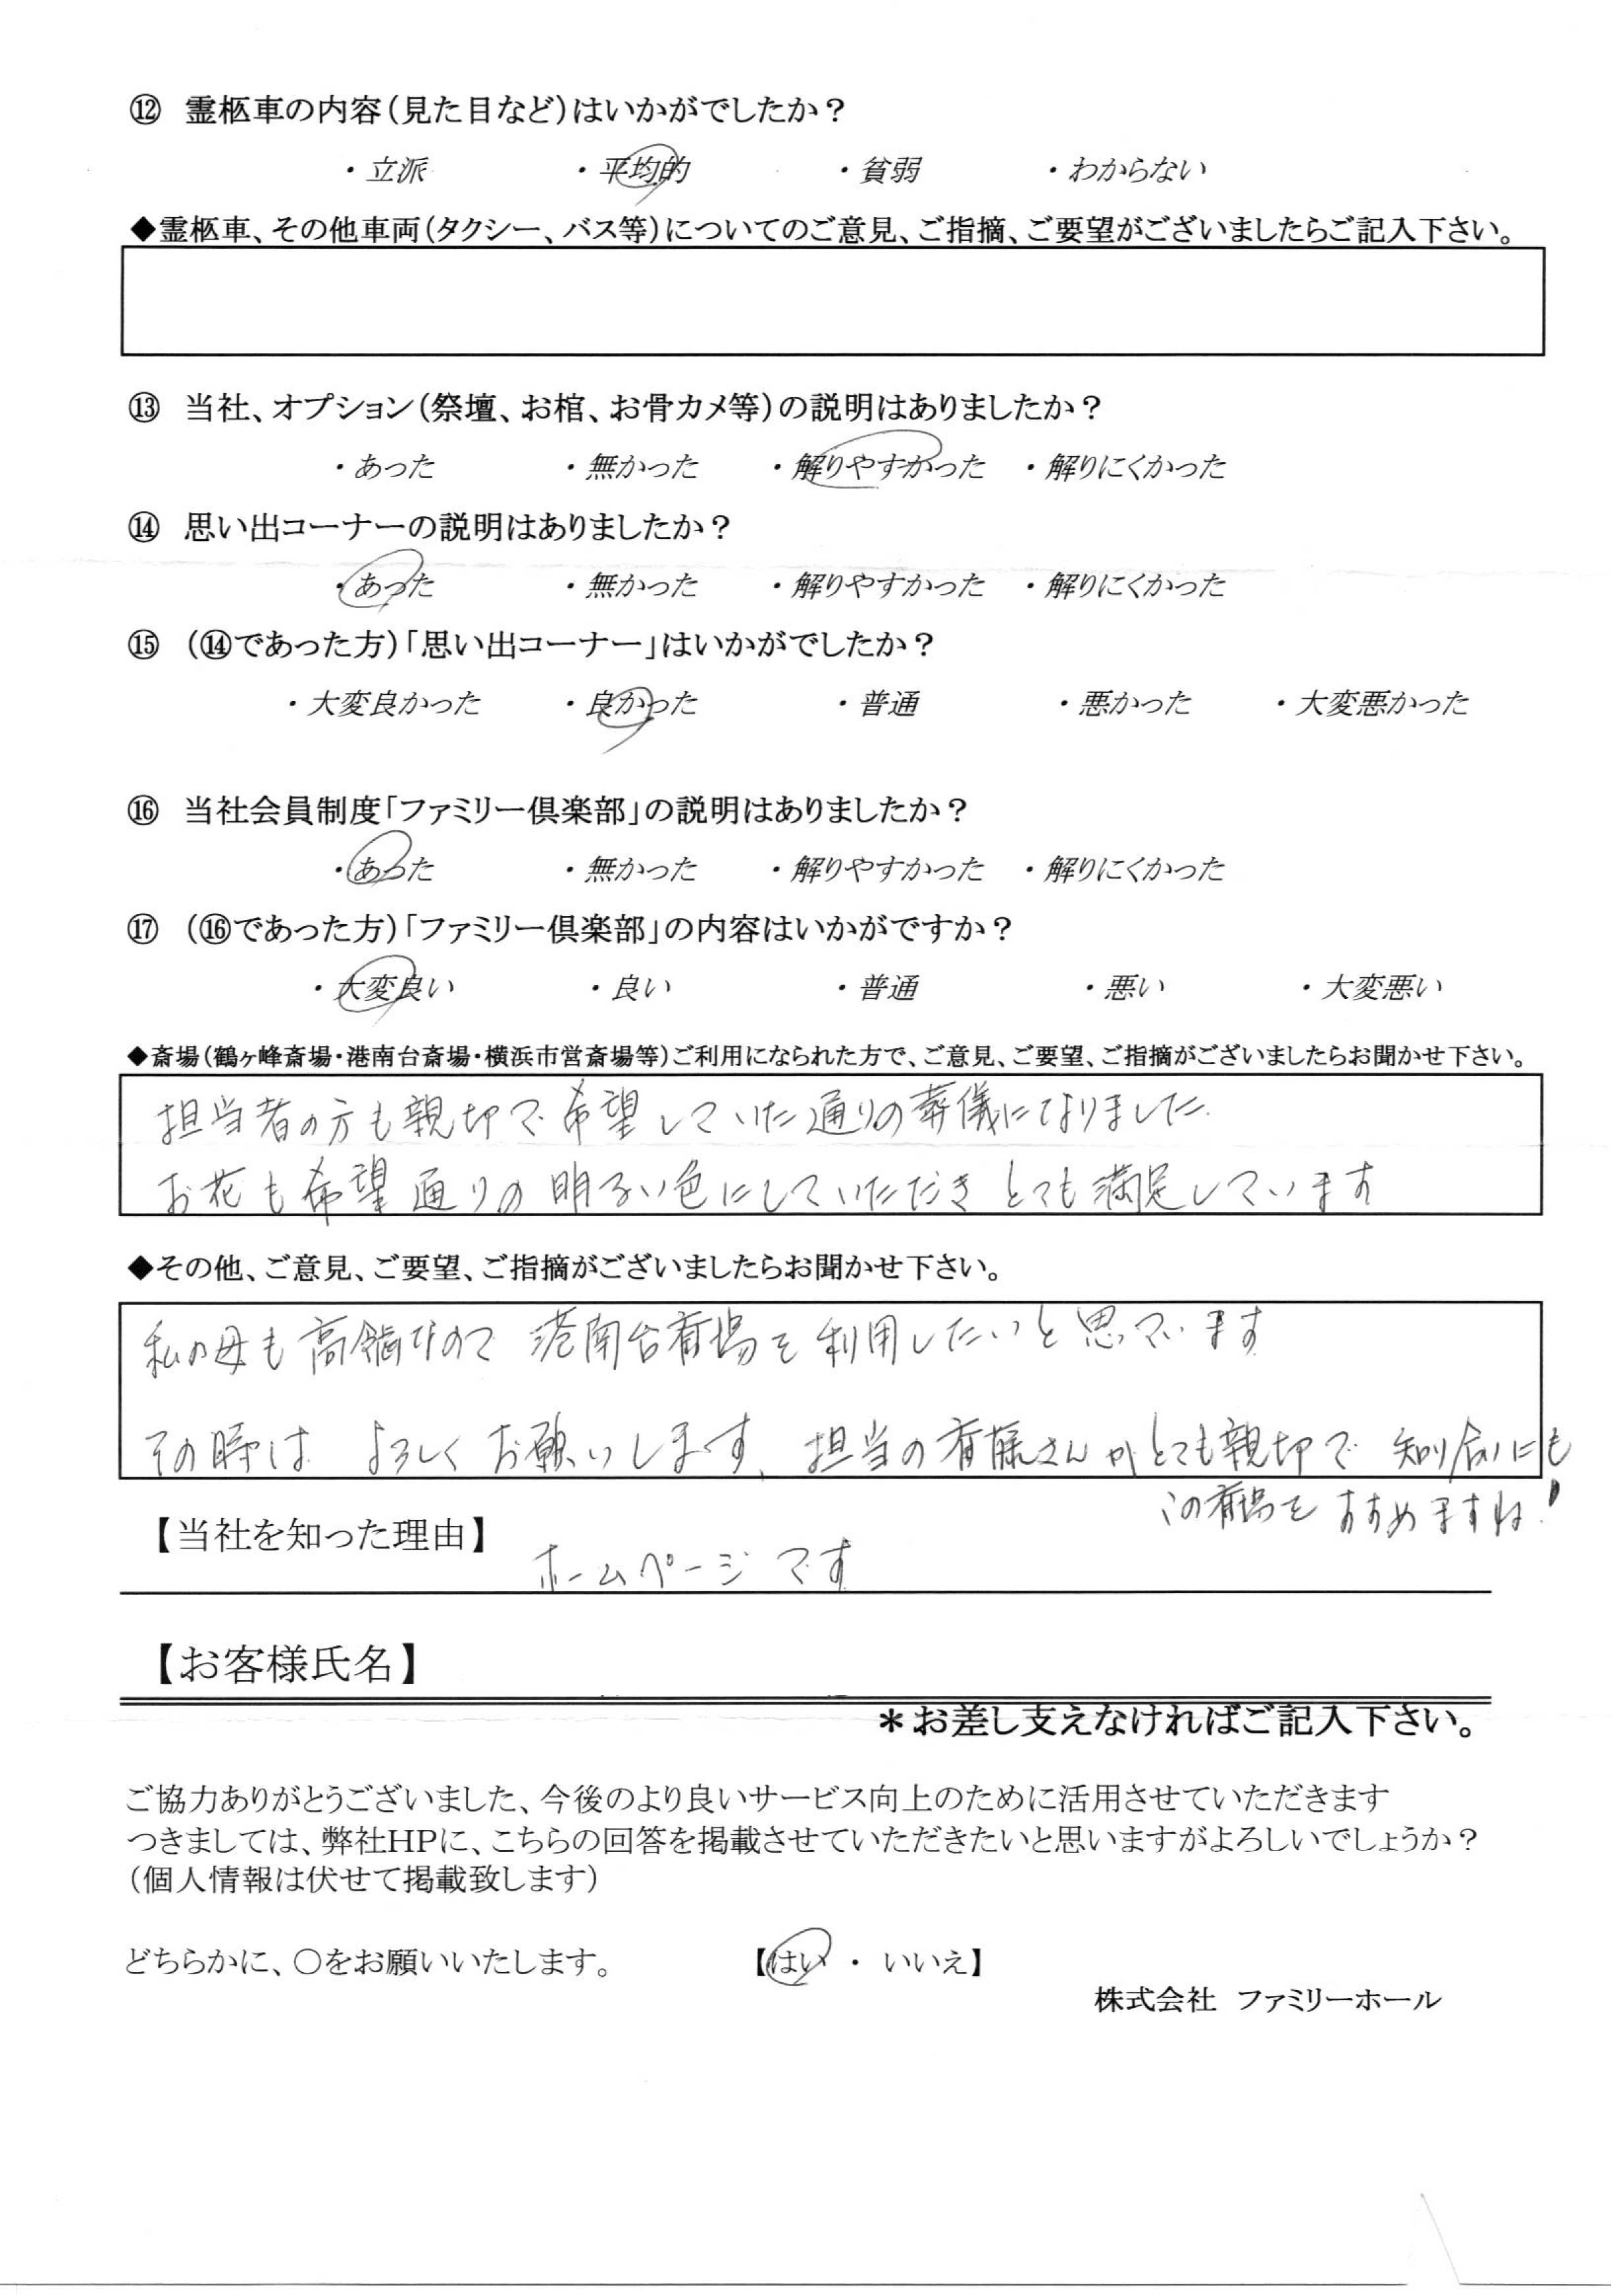 ⑫ 霊柩車の内容（見た目など）はいかがでしたか？
・立派 ・平均的 ・貧弱 ・わからない
◆霊柩車、その他車両（タクシー、バス等）についてのご意見、ご指摘、ご要望がございましたらご記入下さい。
⑬ 当社、オプション（祭壇、お棺、お骨カメ等）の説明はありましたか？
・あった ・無かった ・解りやすかった ・解りにくかった
⑭ 思い出コーナーの説明はありましたか？
・あった ・無かった ・解りやすかった ・解りにくかった
⑮ （⑭であった方）「思い出コーナー」はいかがでしたか？
・大変良かった ・良かった ・普通 ・悪かった ・大変悪かった
⑯ 当社会員制度「ファミリー倶楽部」の説明はありましたか？
・あった ・無かった ・解りやすかった ・解りにくかった
⑰ （⑯であった方）「ファミリー倶楽部」の内容はいかがですか？
・大変良い ・良い ・普通 ・悪い ・大変悪い
◆斎場（鶴ヶ峰斎場・港南台斎場・横浜市営斎場等）ご利用になられた方で、ご意見、ご要望、ご指摘がございましたらお聞かせ下さい。
担当者の方も親切で希望していた通りの葬儀になりました
お花も希望通りの明るい色にしていただきとても満足しています
◆その他、ご意見、ご要望、ご指摘がございましたらお聞かせ下さい。
私の母も高齢なので 港南台斎場を利用したいと思っています
その時は よろしくお願いします、担当の斎藤さんがとても親切で 知り合いにも
この斎場をすすめますね！
【当社を知った理由】 ホームページです
【お客様氏名】
＊お差し支えなければご記入下さい。
ご協力ありがとうございました、今後のより良いサービス向上のために活用させていただきます
つきましては、弊社HPに、こちらの回答を掲載させていただきたいと思いますがよろしいでしょうか？
（個人情報は伏せて掲載致します）
どちらかに、○をお願いいたします。 【はい ・ いいえ】
株式会社 ファミリーホール